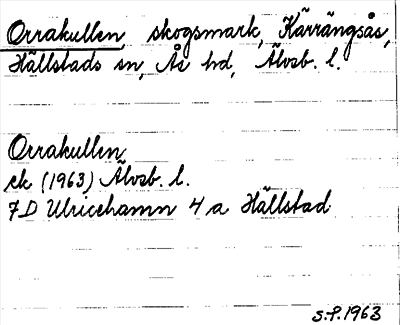 Orrakullen, skogsmark, Kärrängsås,
Hällstads sn, Ås hd, Älvsb. l.
Orrakullen
ek (1963) Älvsb. l.
7D Ulricehamn 4 a Hällstad
S.P. 1963